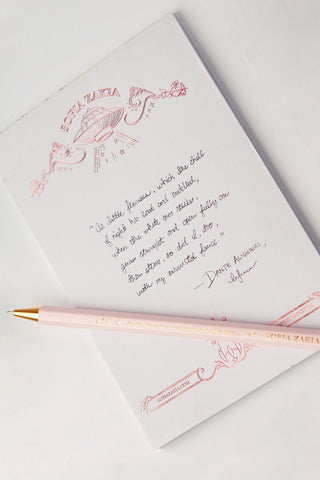 SOFIA ZAKIA
"As little flowers, which the chill
of night has bent and huddled,
when the white sun strikes,
grow straight and open fully on
their stems, so did I, too,
with my exhausted force."
— Dante Alighieri,
Inferno
SOFIA ZAKIA
SOFIAZAKIA.COM